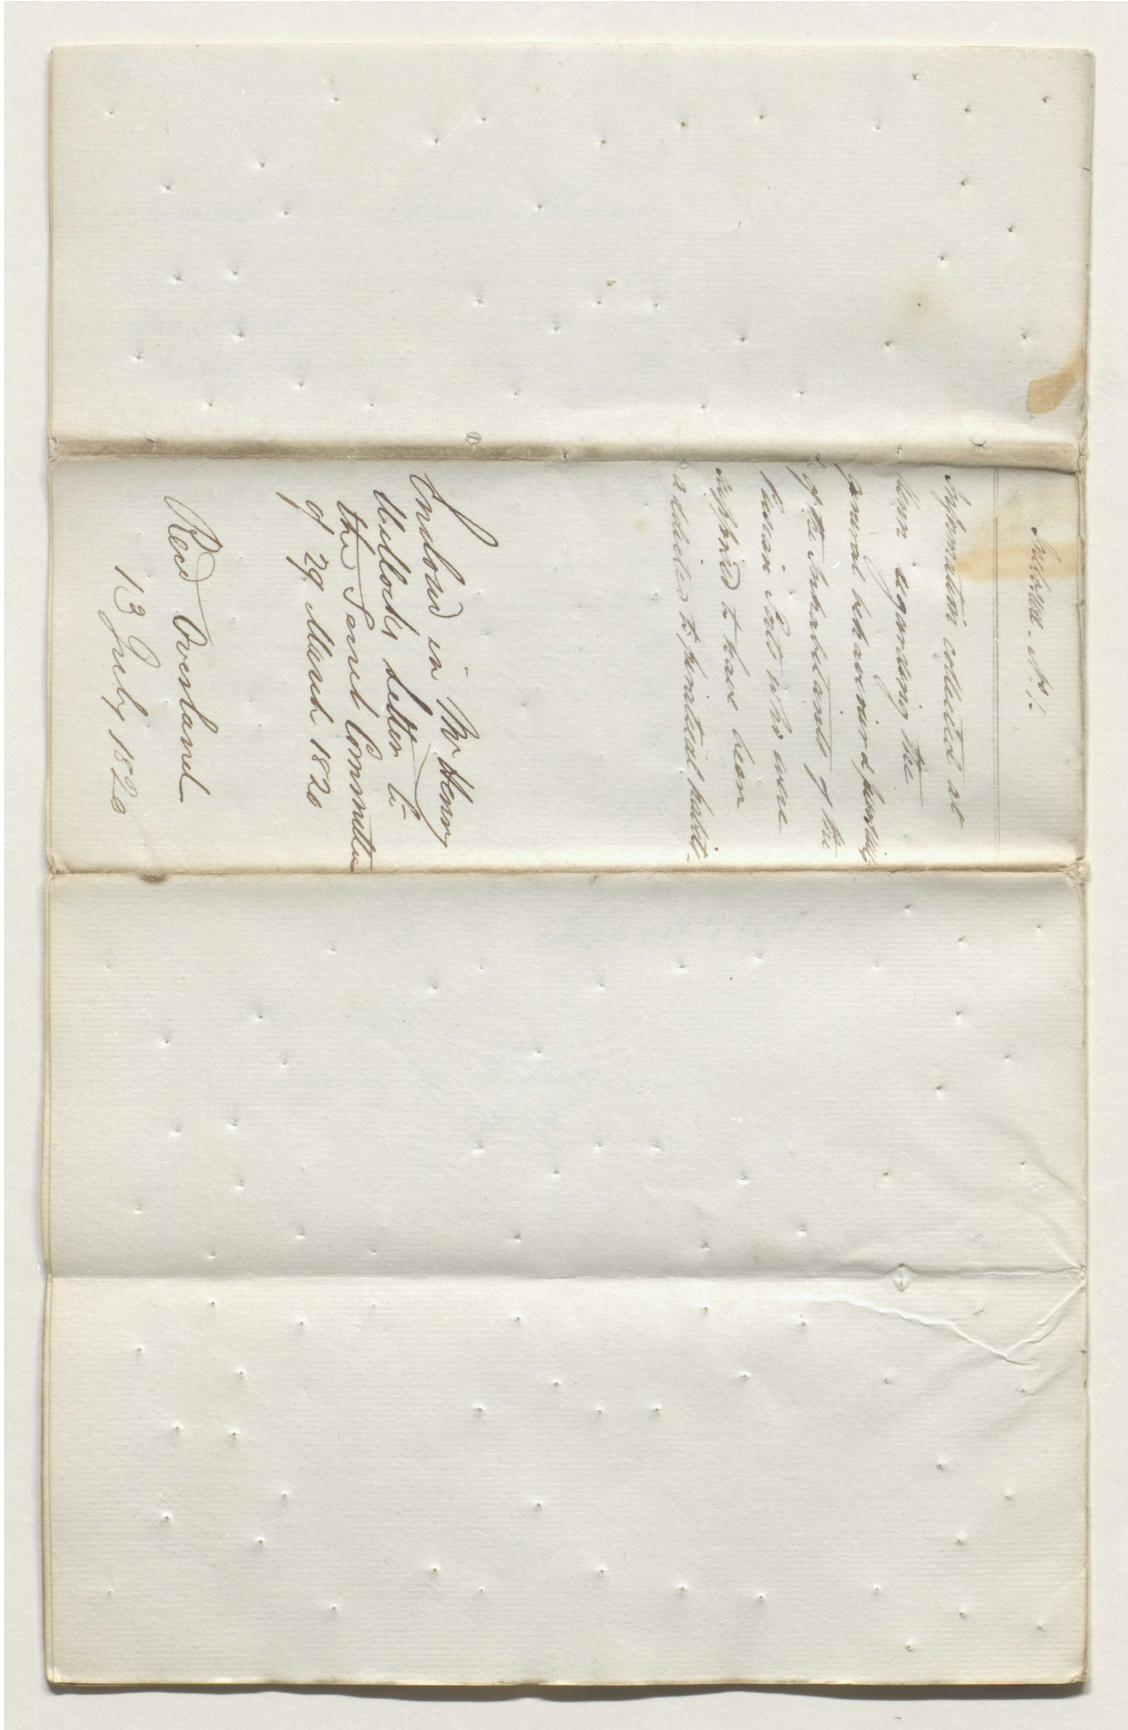 Inclosure. No. 1.
Information collected at
regarding the
general behaviour &
of the Inhabitants of the
Persian Ports who were
supposed to have been
addicted to piratical habits.
Inclosed in Mr Henry
Willock's letter to
the Secret Committee
of 29 March 1820
Recd Overland
13 July 1820